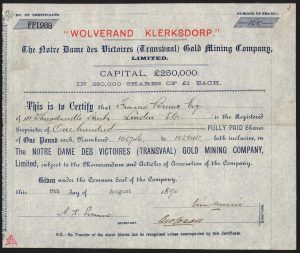 NO. OF CERTIFICATE.
NUMBER OF SHARES
"WOLVERAND KLERKSDORP."
The Notre Dame des Victoires (Transvaal) Gold Mining Company,
LIMITED.
CAPITAL, £250,000.
IN 250,000 SHARES OF £1 EACH.
This is to Certify that Francis Esq
of Threadneedle Street London E.C. is the Registered
Proprietor of One hundred FULLY PAID Shares
of One Pound each, Numbered to both inclusive, in
THE NOTRE DAME DES VICTOIRES (TRANSVAAL) GOLD MINING COMPANY,
Limited, subject to the Memorandum and Articles of Association of the Company.
Given under the Common Seal of the Company,
this 8th day of August 1890
SECRETARY.
DIRECTORS.
N.B.—No Transfer of the above Shares can be recognised unless accompanied by this Certificate.